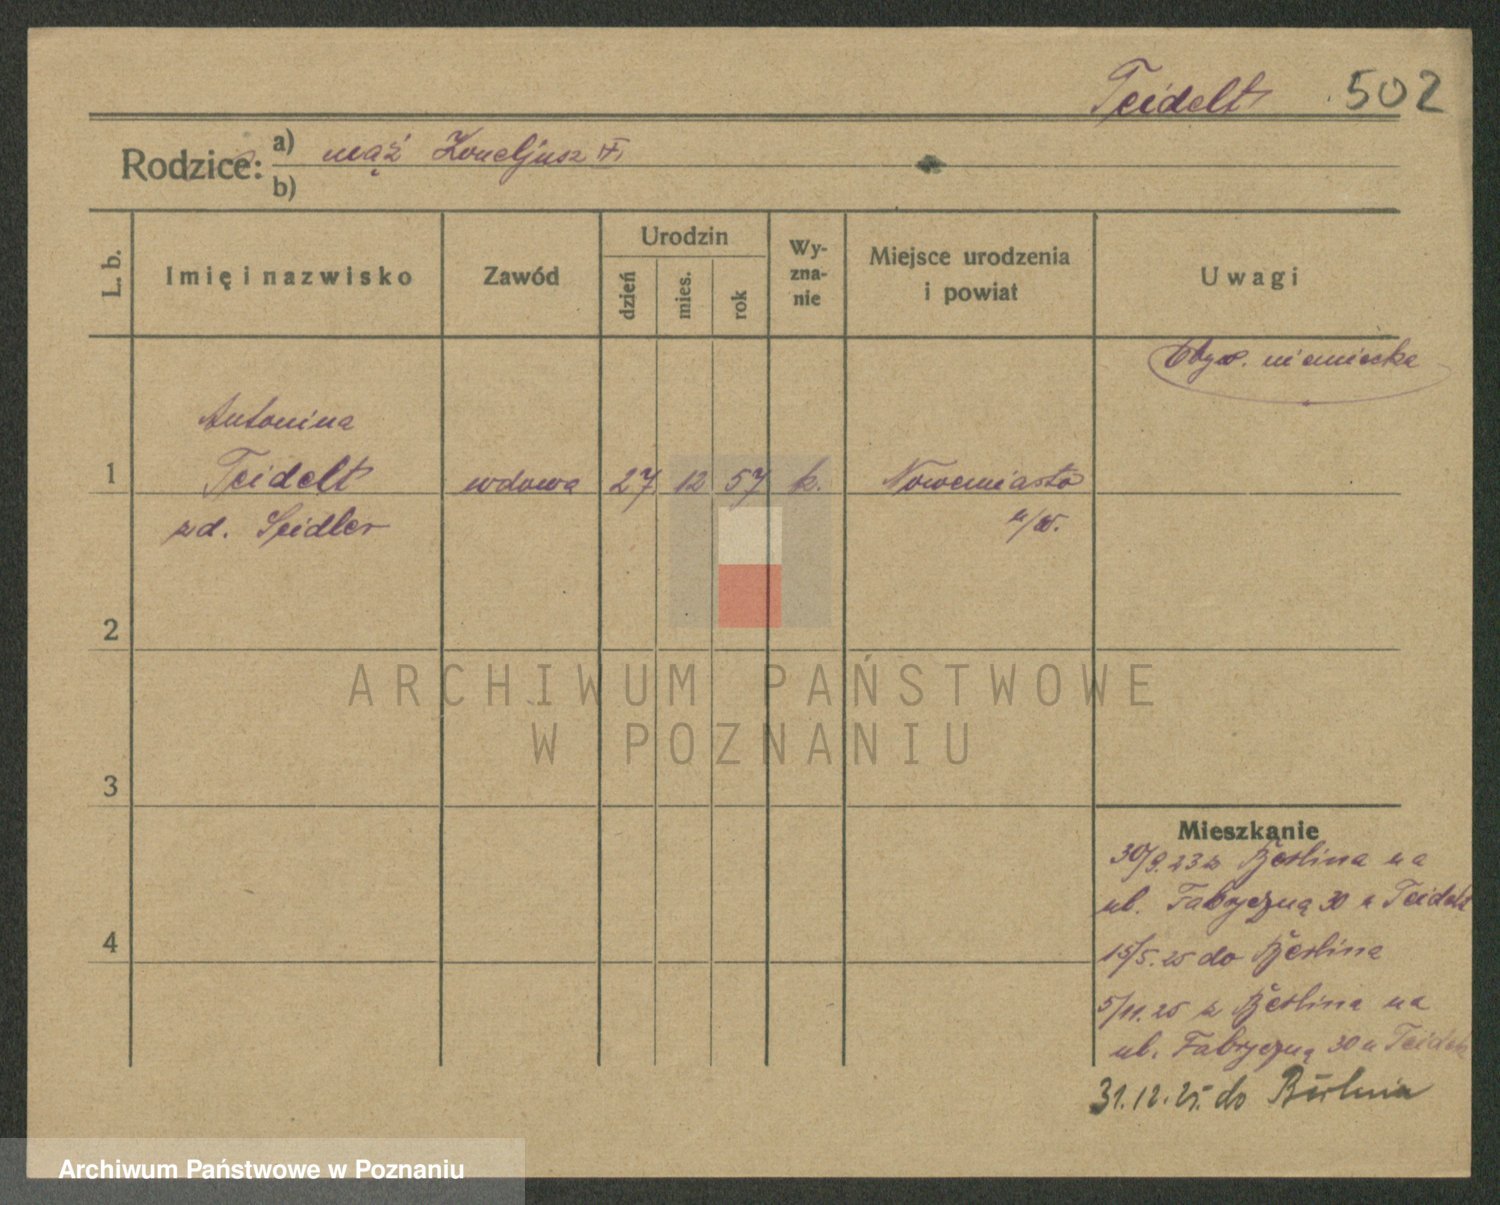 Teidelt 502
Rodzice: a) mąż Korneljusz
b)
L. b.
Imię i nazwisko
Zawód
Urodzin
dzień
mies.
rok
Wy-
zna-
nie
Miejsce urodzenia
i powiat
Uwagi
Obyw. niemiecka
Antonina
1 Teidelt wdowa 27 12 57 k. Nowemiasto
zd. Seidler n/W.
2
3
4
Mieszkanie
30/9.23 z Berlina na
ul. Fabryczną 30 u Teidelt
15/5.25 do Berlina
5/11.25 z Berlina na
ul. Fabryczną 30 u Teidelt
31.12.25. do Berlina
ARCHIWUM PAŃSTWOWE
W POZNANIU
Archiwum Państwowe w Poznaniu